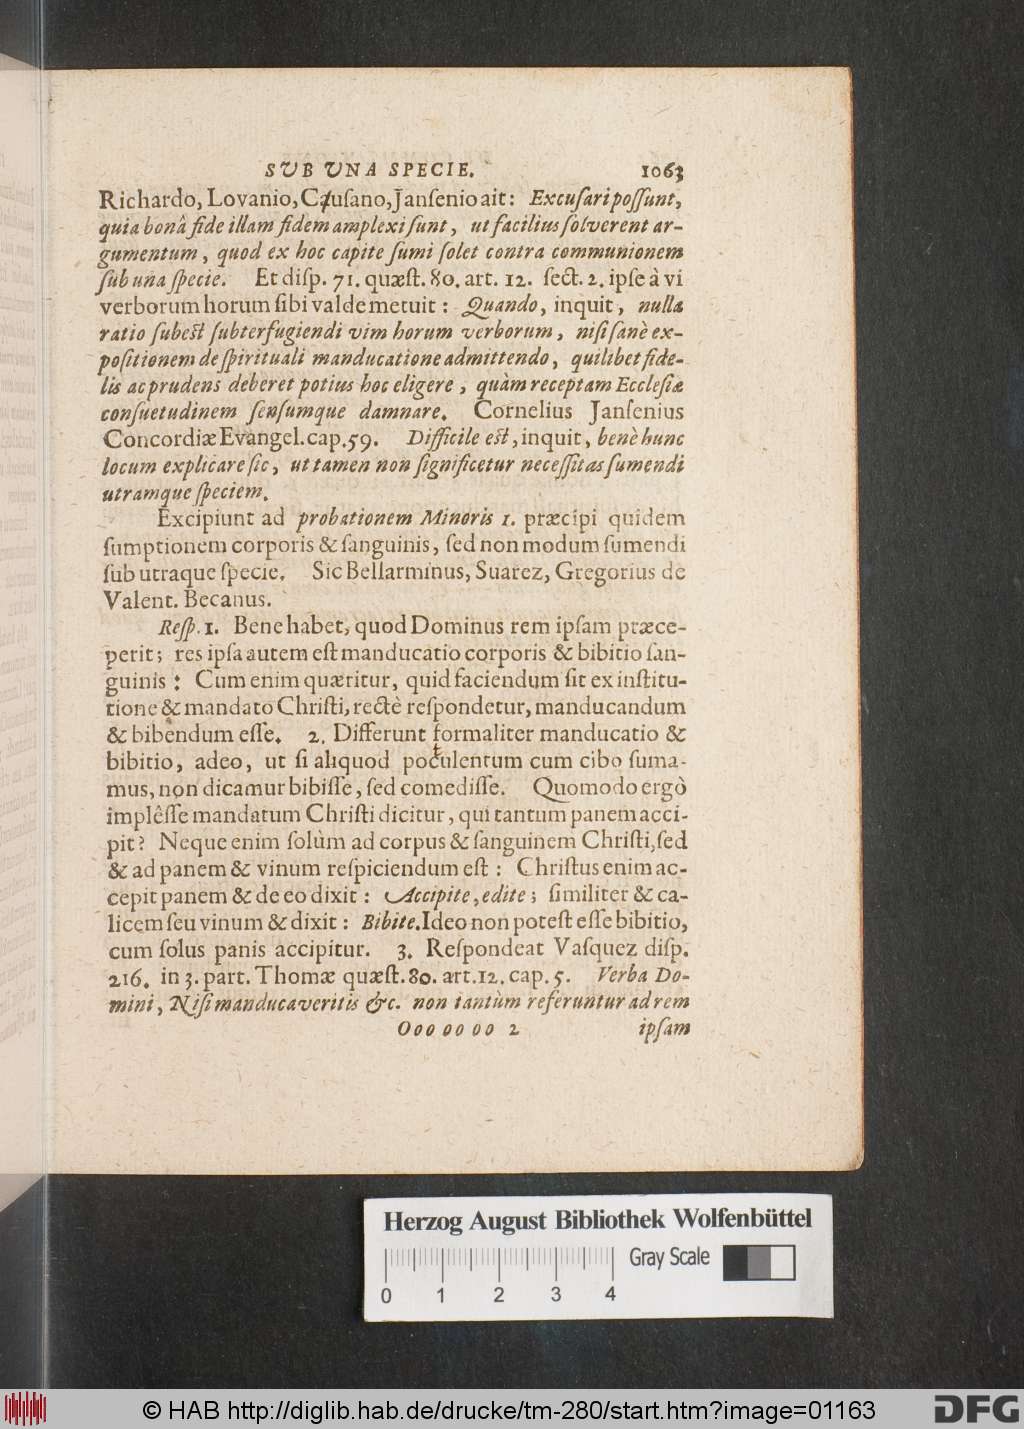 SUB UNA SPECIE. 1063
Richardo, Lovanio, Cauſano, Janſenio ait: Excuſari poſſunt,
quia bonâ fide illam fidem amplexi ſunt, ut facilius ſolverent ar-
gumentum, quod ex hoc capite ſumi ſolet contra communionem
ſub una ſpecie. Et diſp. 71. quæſt. 80. art. 12. ſect. 2. ipſe à vi
verborum horum ſibi valde metuit: Quando, inquit, nulla
ratio ſubeſt ſubterfugiendi vim horum verborum, niſi ſanè ex-
poſitionem de ſpirituali manducatione admittendo, quilibet fide-
lis ac prudens deberet potius hoc eligere, quàm receptam Eccleſiæ
conſuetudinem ſenſumque damnare. Cornelius Janſenius
Concordiæ Evangel. cap. 59. Difficile eſt, inquit, benè hunc
locum explicare ſic, ut tamen non ſignificetur neceſſitas ſumendi
utramque ſpeciem.
Excipiunt ad probationem Minoris 1. præcipi quidem
ſumptionem corporis & ſanguinis, ſed non modum ſumendi
ſub utraque ſpecie. Sic Bellarminus, Suarez, Gregorius de
Valent. Becanus.
Reſp. 1. Bene habet, quod Dominus rem ipſam præce-
perit; res ipſa autem eſt manducatio corporis & bibitio ſan-
guinis: Cum enim quæritur, quid faciendum ſit ex inſtitu-
tione & mandato Chriſti, rectè reſpondetur, manducandum
& bibendum eſſe. 2. Differunt formaliter manducatio &
bibitio, adeo, ut ſi aliquod poculentum cum cibo ſuma-
mus, non dicamur bibiſſe, ſed comediſſe. Quomodo ergò
implêſſe mandatum Chriſti dicitur, qui tantum panem acci-
pit? Neque enim ſolùm ad corpus & ſanguinem Chriſti, ſed
& ad panem & vinum reſpiciendum eſt: Chriſtus enim ac-
cepit panem & de eo dixit: Accipite, edite; ſimiliter & ca-
licem ſeu vinum & dixit: Bibite. Ideo non poteſt eſſe bibitio,
cum ſolus panis accipitur. 3. Reſpondeat Vaſquez diſp.
216. in 3. part. Thomæ quæſt. 80. art. 12. cap. 5. Verba Do-
mini, Niſi manducaveritis &c. non tantùm referuntur ad rem
Ooo oo oo 2 ipſam
Herzog August Bibliothek Wolfenbüttel
Gray Scale
0 1 2 3 4
© HAB http://diglib.hab.de/drucke/tm-280/start.htm?image=01163
DFG